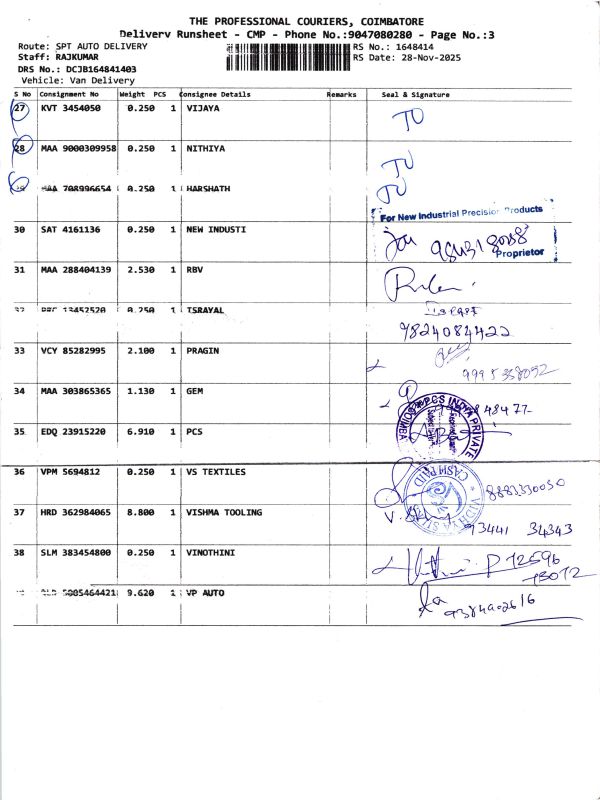 THE PROFESSIONAL COURIERS, COIMBATORE
Delivery Runsheet - CMP - Phone No.:9047080280 - Page No.:3
Route: SPT AUTO DELIVERY
RS No.: 1648414
Staff: RAJKUMAR
RS Date: 28-Nov-2025
DRS No.: DCJB164841403
Vehicle: Van Delivery
S No Consignment No Weight PCS Consignee Details Remarks Seal & Signature
27 KVT 3454050 0.250 1 VIJAYA
28 MAA 9000309958 0.250 1 NITHIYA
29 MAA 708996654 0.250 1 HARSHATH
For New Industrial Precision Products
30 SAT 4161136 0.250 1 NEW INDUSTI
Proprietor
31 MAA 288404139 2.530 1 RBV
32 13452520 0.250 1 TSRAYAL
9824084422
33 VCY 85282995 2.100 1 PRAGIN
34 MAA 303865365 1.130 1 GEM
35 EDQ 23915220 6.910 1 PCS
PCS INDIA PRIVATE
36 VPM 5694812 0.250 1 VS TEXTILES
CASH PAID
8883330030
37 HRD 362984065 8.800 1 VISHMA TOOLING
93441 34343
38 SLM 383454800 0.250 1 VINOTHINI
5005464421 9.620 1 VP AUTO